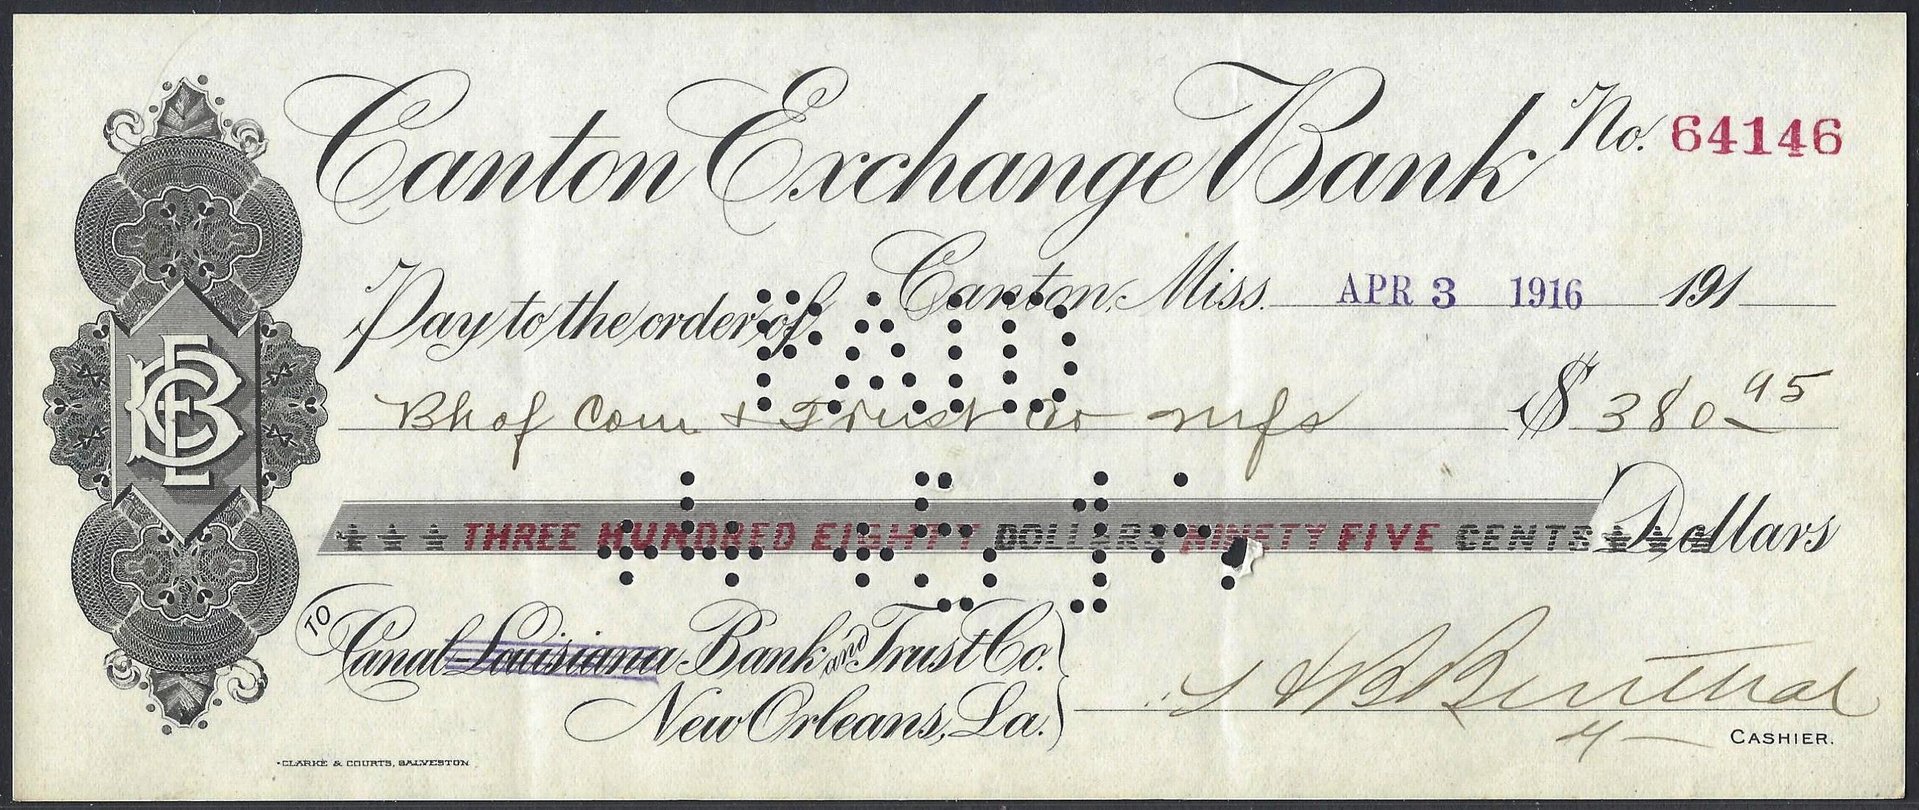 Canton Exchange Bank No. 64146
Canton, Miss. APR 3 1916 191
Pay to the order of
PAID
Bk of Com & Trust Co mfs $ 380 95
THREE HUNDRED EIGHTY DOLLARS NINETY FIVE CENTS Dollars
4-5-1
TO Canal Louisiana Bank and Trust Co.
New Orleans, La.
CASHIER.
CLARKE & COURTS, GALVESTON
ECB